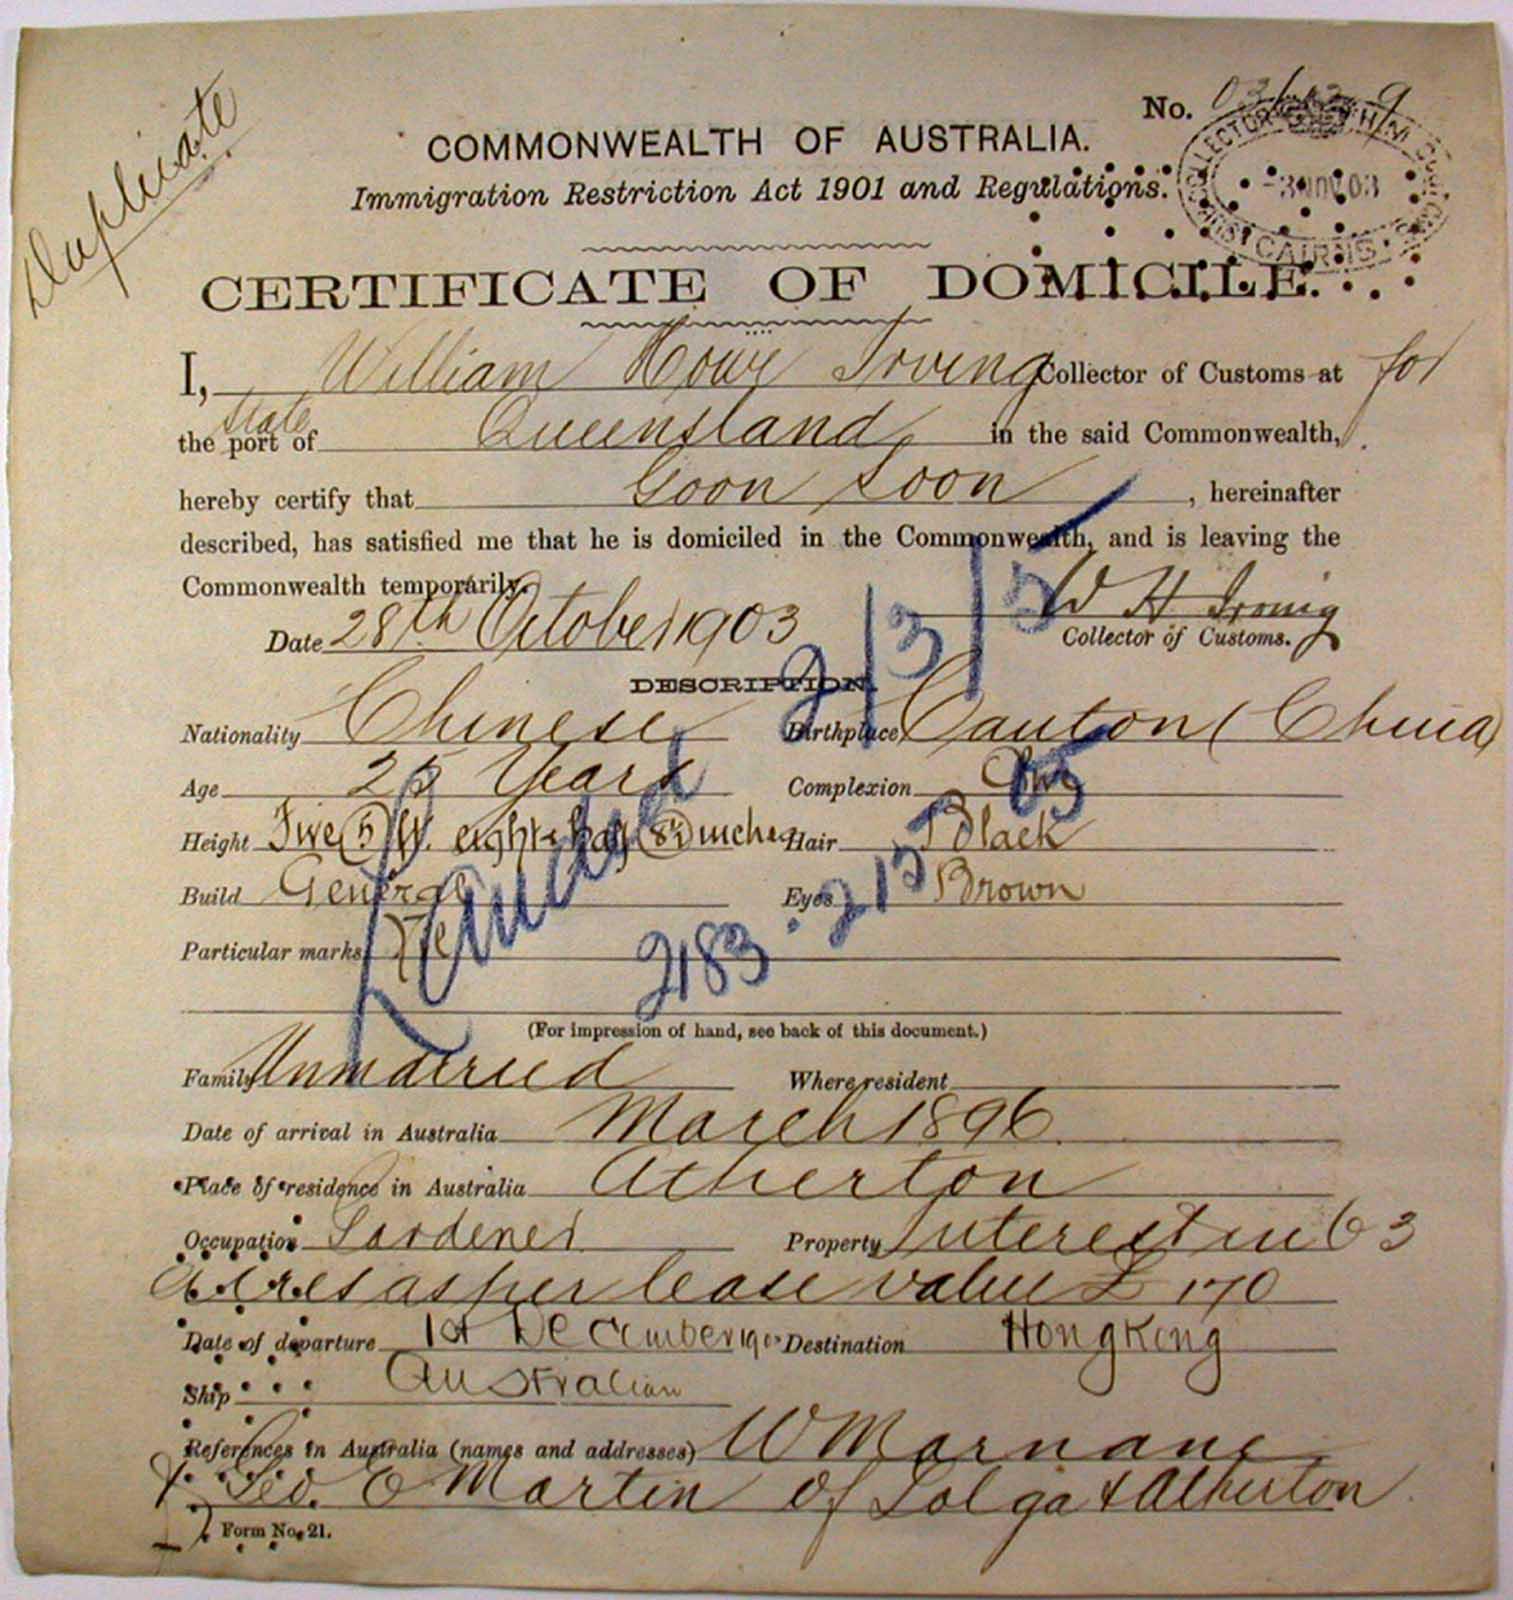 Duplicate
No. 03/
COLLECTOR H.M. CUSTOMS
3 NOV. 03
CAIRNS
COMMONWEALTH OF AUSTRALIA.
Immigration Restriction Act 1901 and Regulations.
CERTIFICATE OF DOMICILE.
I, William Howe Irving Collector of Customs at for
State
the port of Queensland in the said Commonwealth,
hereby certify that Goon Soon, hereinafter
described, has satisfied me that he is domiciled in the Commonwealth, and is leaving the
Commonwealth temporarily.
Date 28th October 1903 W H Irving
Collector of Customs.
DESCRIPTION.
Nationality Chinese Birthplace Canton (China)
Age 25 Years Complexion
Height Five (5) ft. eight & half (8½) inches Hair Black
Build General Eyes Brown
Particular marks
Landed
2183
(For impression of hand, see back of this document.)
Family Unmarried Where resident
Date of arrival in Australia March 1896
Place of residence in Australia Atherton
Occupation Gardener Property Interest in 63
acres as per lease value £170
Date of departure 1st December 190 Destination HongKong
Ship Australian
References in Australia (names and addresses) W Marnane
& Geo. E Martin of Tolga & Atherton
Form No. 21.